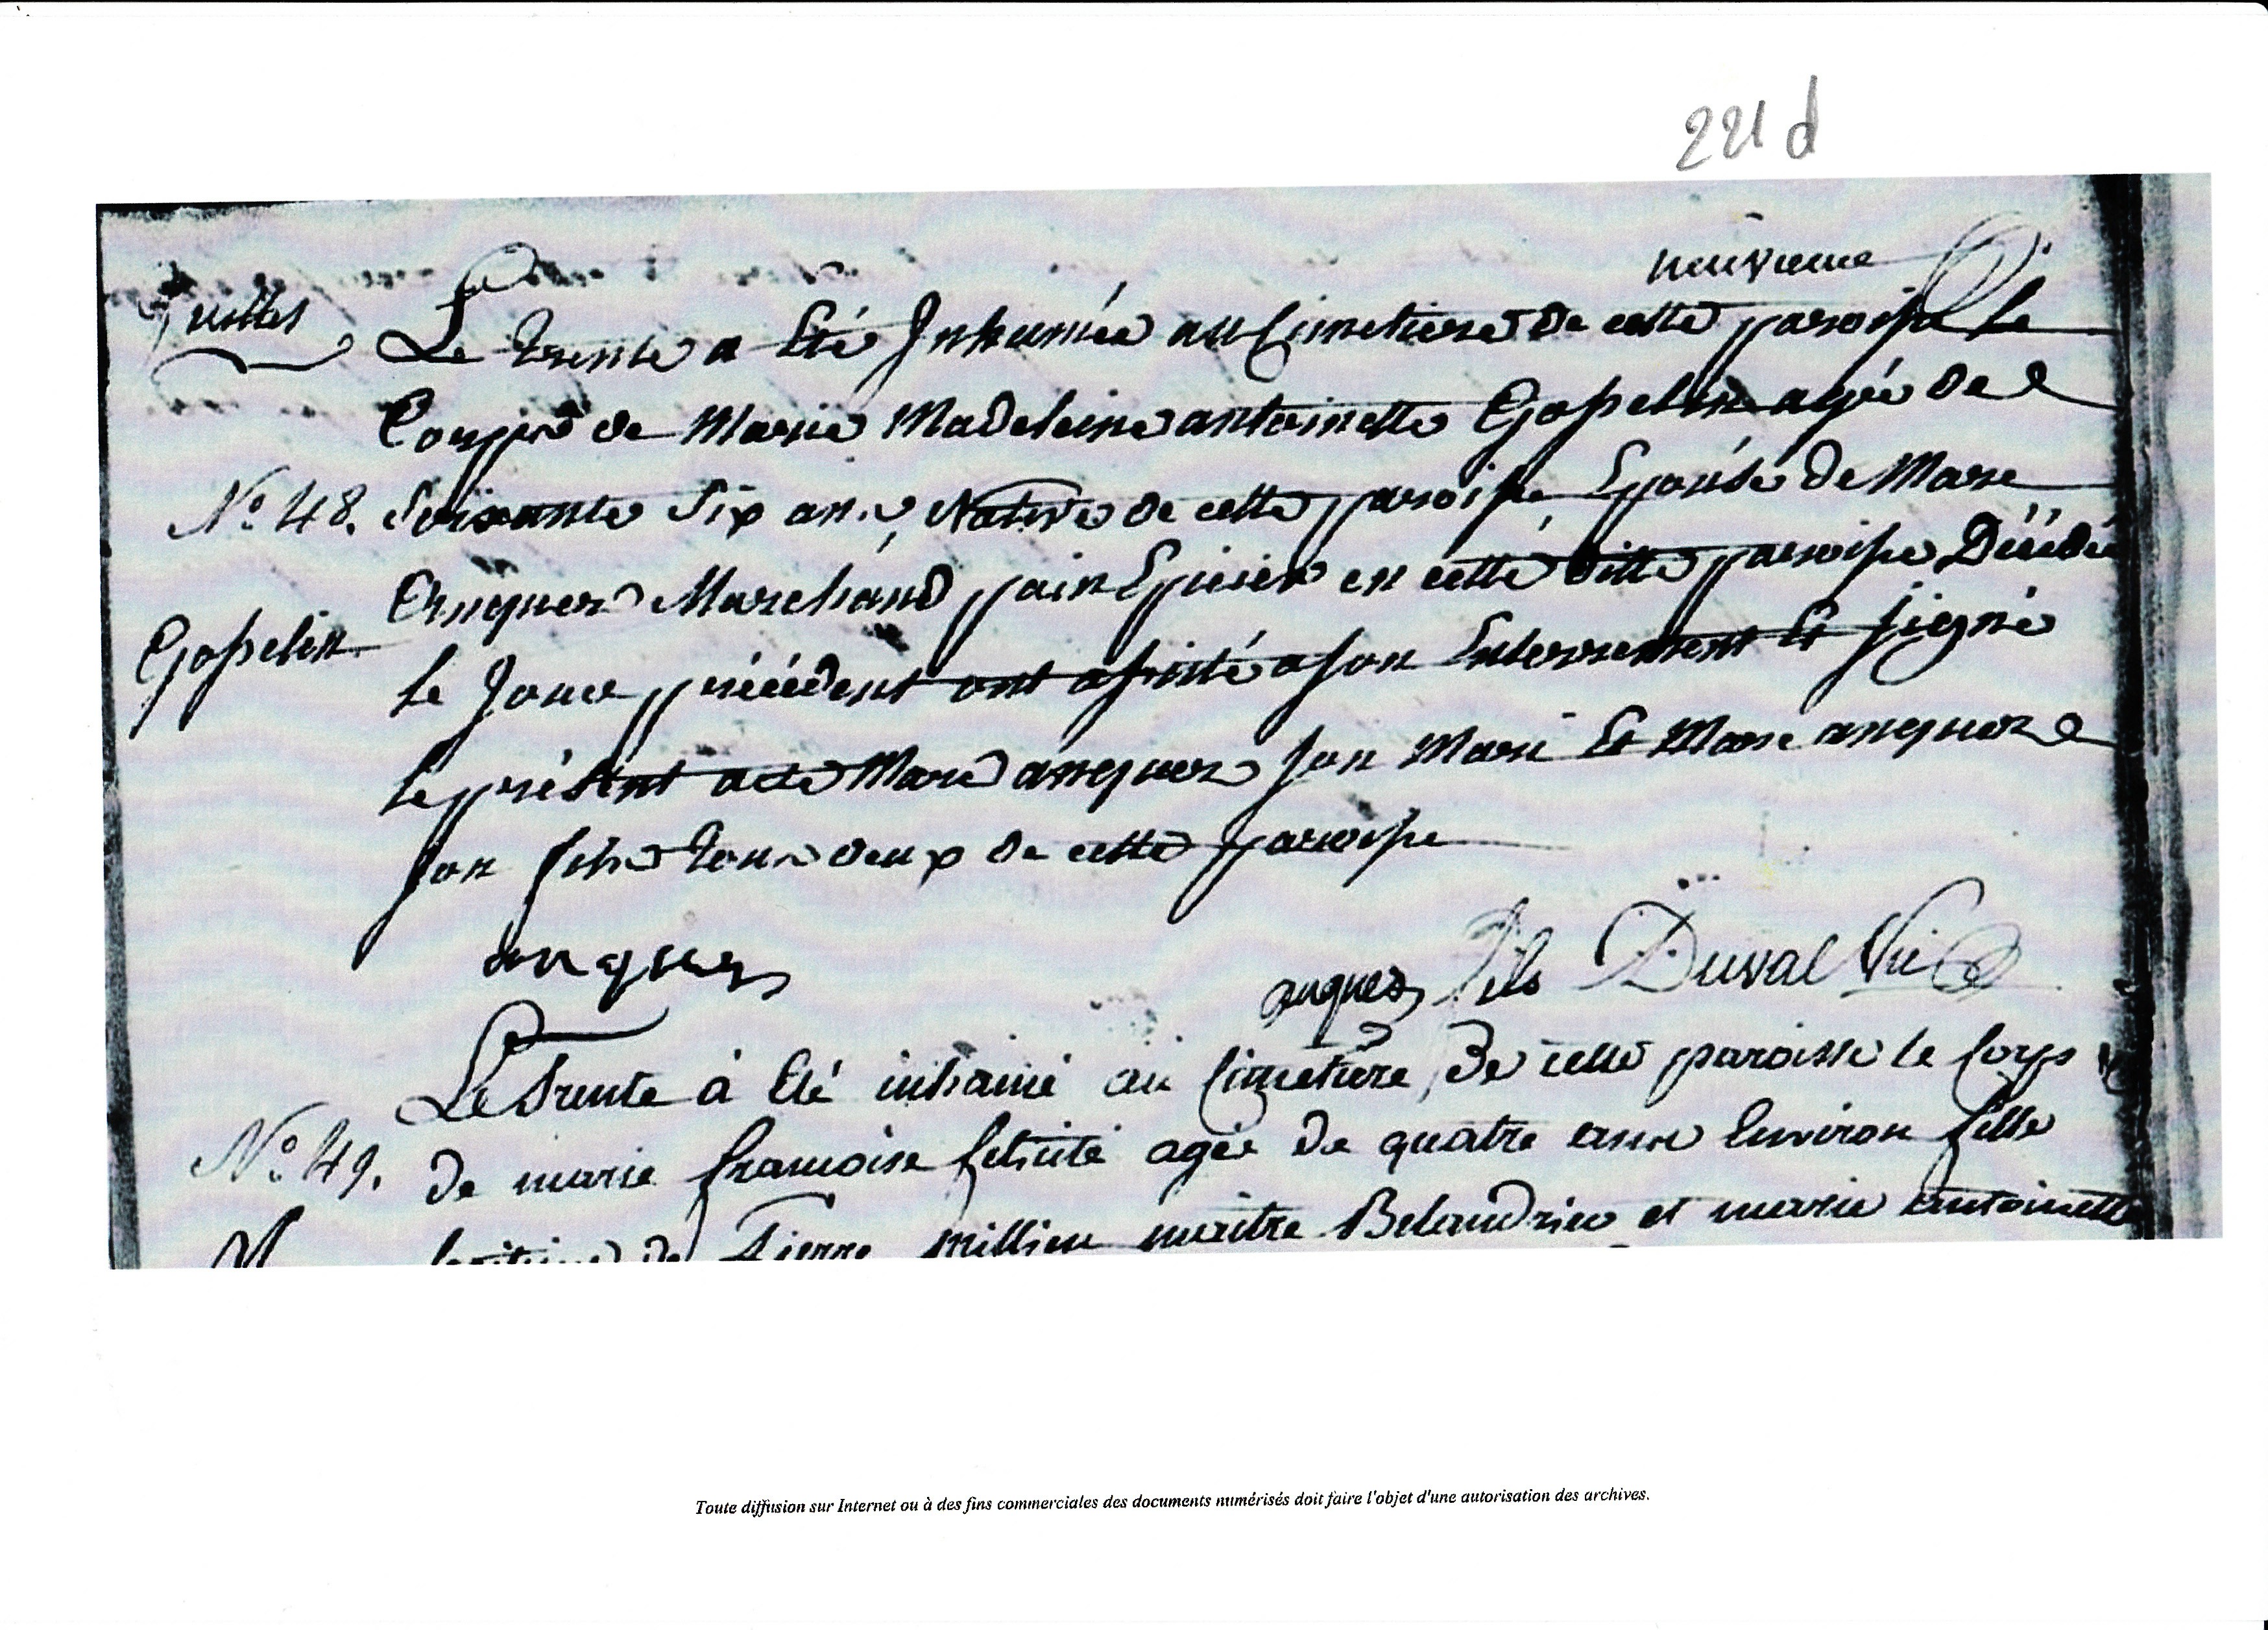 221 d
neuvieme
Juillet
Le trente a Eté Inhumée au Cimetiere de cette paroisse Le
Corps de Marie Madeleine antoinette Gosselin agée de
N.º 48. Soixante Six ans, Native de cette paroisse Epouse de Marc
Anquez Marchand pain Epicier en cette ditte paroisse Décédée
Gosselin
le Jour précédent ont assisté a son Enterrement Et signé
le présent acte Marc anquez son Mari Et Marc anquez
son fils tous deux de cette paroisse
anquez
anquez fils Duval Vic
Le trente à Eté inhumé au Cimetiere De cette paroisse le Corps
N.º 49. de marie francoise felicité agée de quatre ans Environ fille
legitime de Pierre millien maitre Belandrier et marie antoinette
Toute diffusion sur Internet ou à des fins commerciales des documents numérisés doit faire l'objet d'une autorisation des archives.